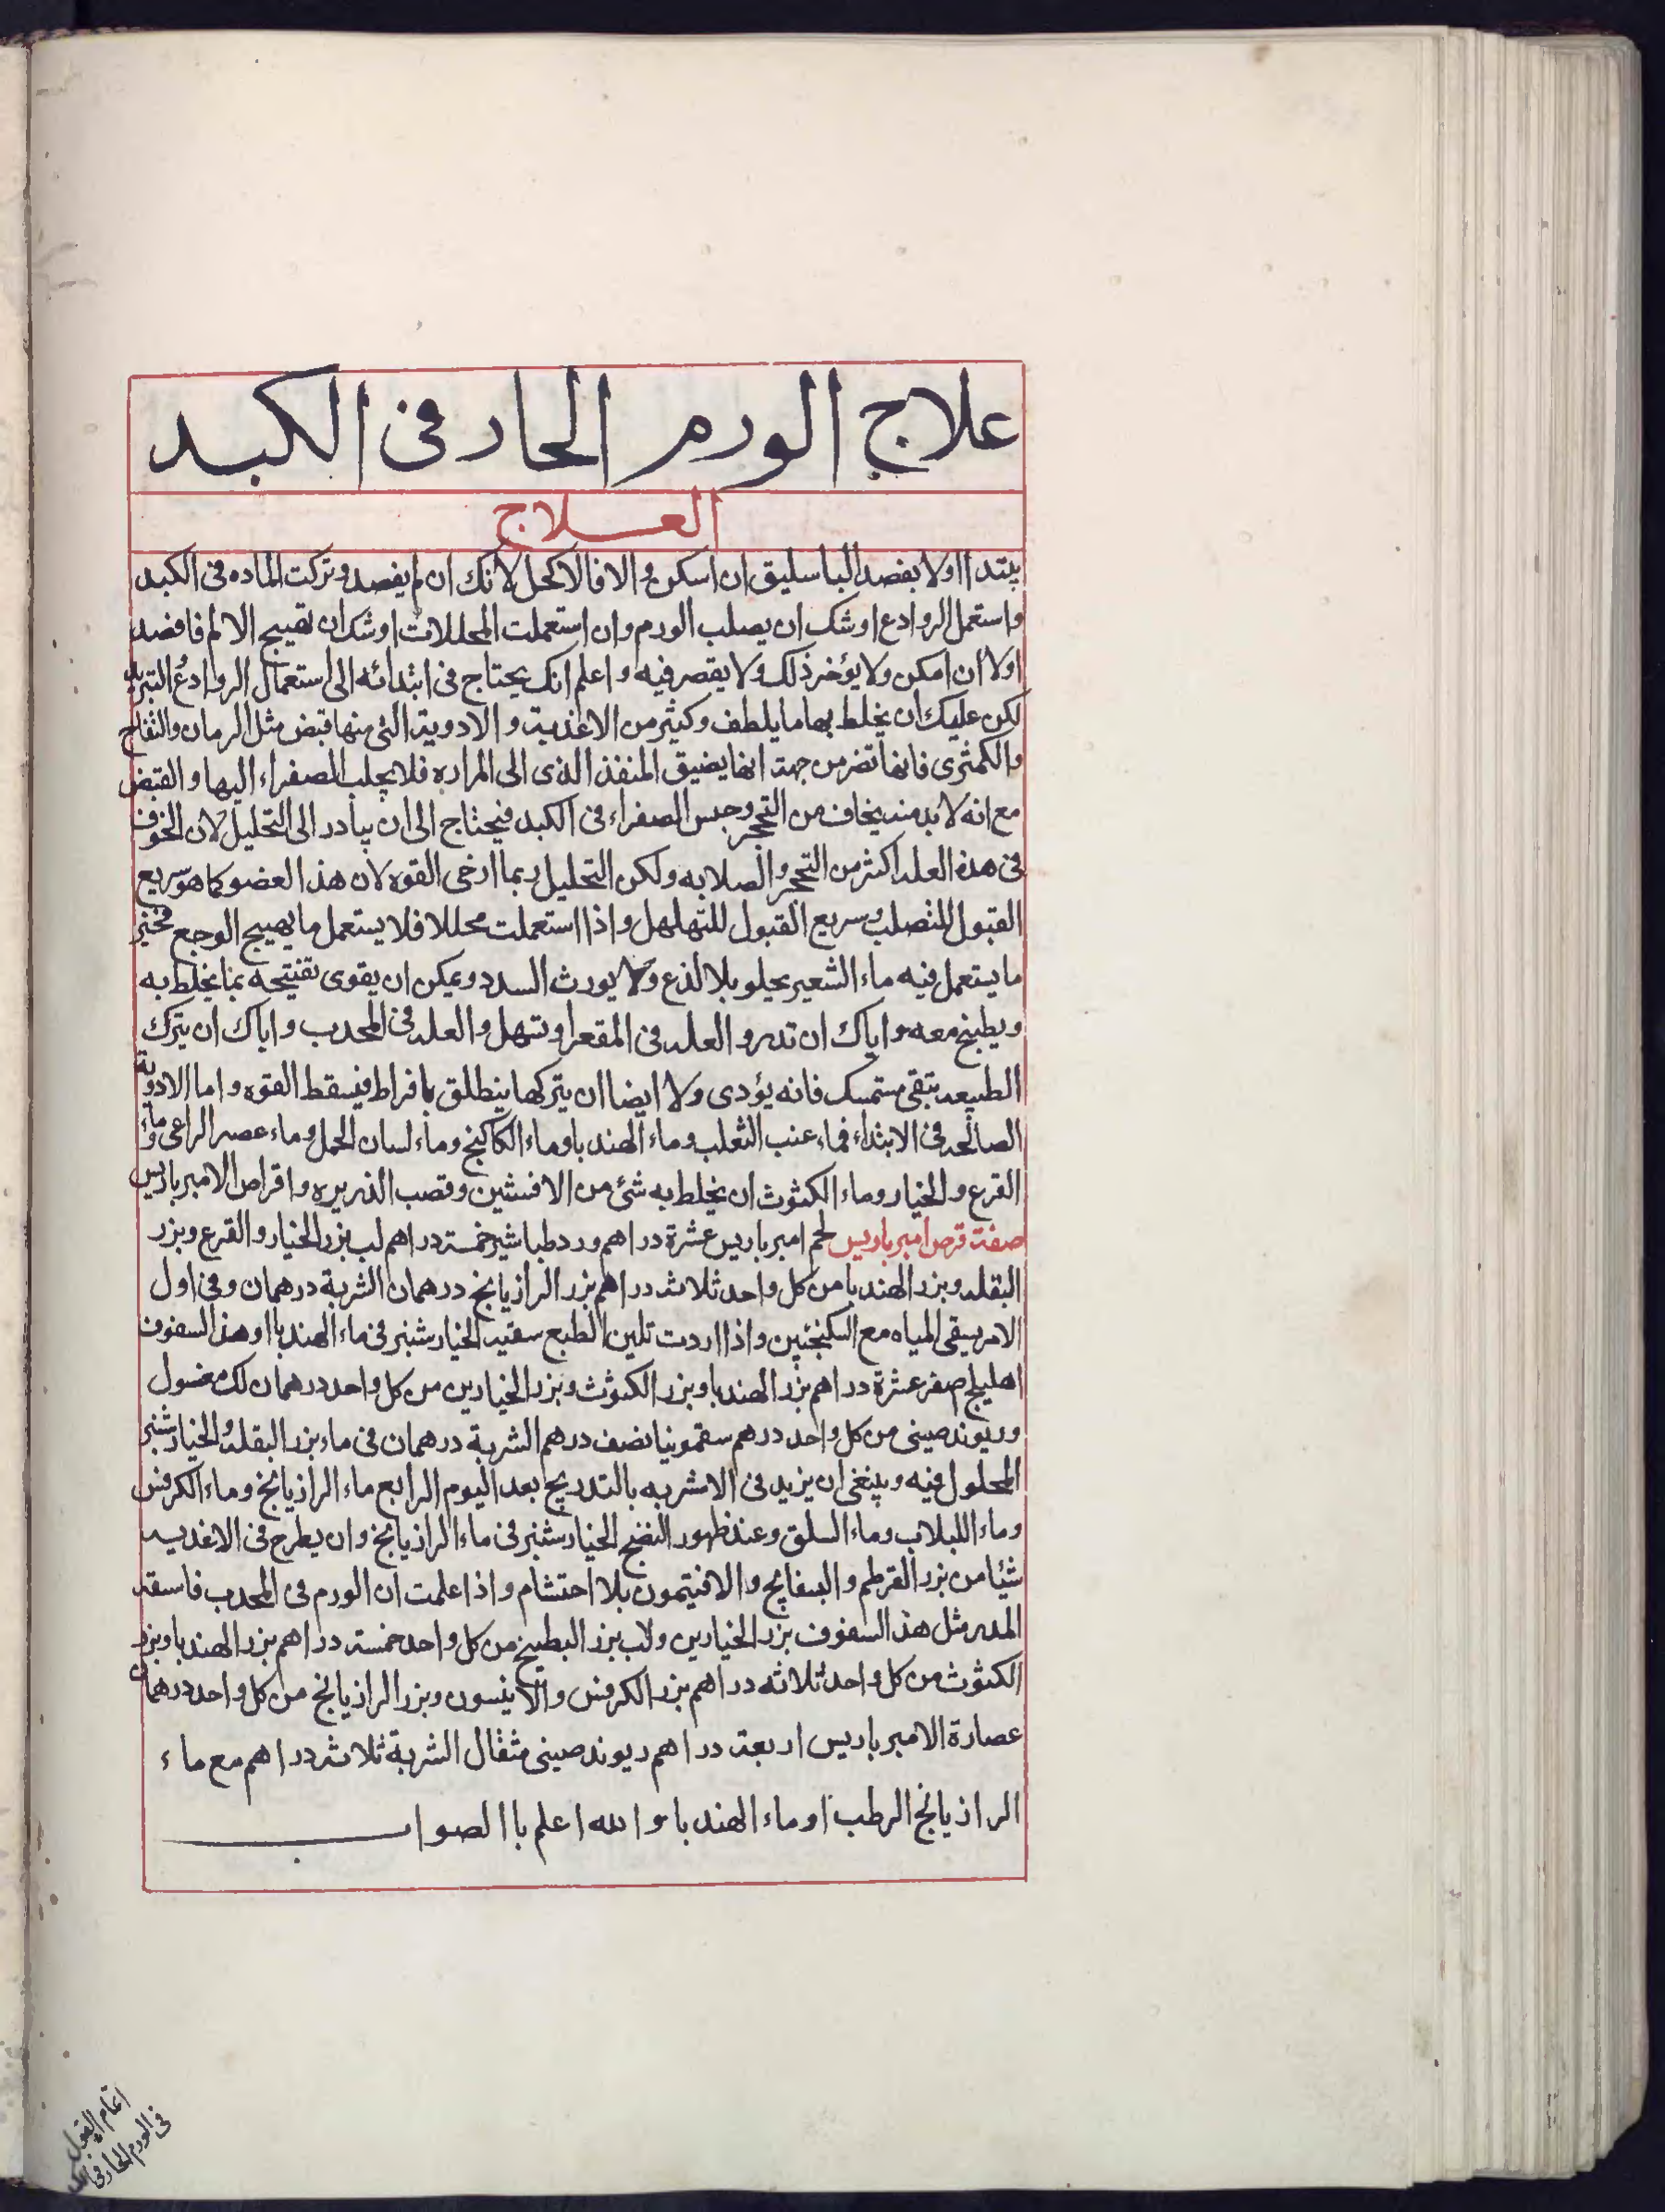 علاج الورم الحار فى الكبد
العلاج
يبتدا اولا بفصد الباسليق ان اسكن والا فالاكحل لانك ان لم يفصد وتركت الماده فى الكبد
واستعمل الروادع اوشك ان يصلب الورم وان استعملت المحللات اوشك ان تهييج الالم فافصد
اولا ان امكن ولا يؤخر ذلك ولا يقصر فيه واعلم انك يحتاج فى ابتدائه الى استعمال الروادع التبريد
لكن عليك ان يخلط بها ما يلطف وكثير من الاغذية والادوية التى منها قبض مثل الرمان والتفاح
والكمثرى فانها تضر من جهة انها يضيق المنفذ الذى الى المراره فلا يجلب الصفراء اليها والقبض
مع انه لا بد منه يخاف من التحجر وحبس الصفراء فى الكبد فيحتاج الى ان يبادر الى التحليل لان الخوف
فى هذه العله اكثر من التحجر والصلابه ولكن التحليل ربما ارخى القوه لان هذا العضو كما هو سريع
القبول للتصلب وسريع القبول للتهلهل واذا استعملت محللا فلا يستعمل ما يهييج الوجع فخير
ما يستعمل فيه ماء الشعير يجلو بلا لذع ولا يورث السدد ويمكن ان يقوى تفتيحه بما يخلط به
ويطبخ معه واياك ان تدر والعله فى المقعر او تسهل والعله فى المحدب واياك ان يترك
الطبيعه يبقى مستمسك فانه يؤدى ولا ايضا ان يتركها ينطلق بافراط فيسقط القوه واما الادوية
الصالحه فى الابتداء فماء عنب الثعلب وماء الهندبا وماء الكاكنج وماء لسان الحمل وماء عصا الراعى وماء
القرع والخيار وماء الكثوث ان يخلط به شئ من الافسنتين وقصب الذريره واقراص الامبرباريس
صفة قرص امبرباريس لحم امبرباريس عشرة دراهم ورد طباشير خمسة دراهم لب بزر الخيار والقرع وبزر
البقله وبزر الهندبا من كل واحد ثلاثة دراهم بزر الرازيانج درهمان الشربة درهمان وفى اول
الامر يسقى المياه مع السكنجبين واذا اردت تلين الطبع سقيه الخيارشنبر فى ماء الهندبا او هذ السفوف
اهليلج اصفر عشرة دراهم بزر الهندبا وبزر الكثوث وبزر الخيارين من كل واحد درهمان لك مغسول
وريوند صينى من كل واحد درهم سقمونيا نصف درهم الشربة درهمان فى ماء بزر البقله والخيارشنبر
المحلول فيه وينبغى ان يزيد فى الاشربه بالتدريج بعد اليوم الرابع ماء الرازيانج وماء الكرفس
وماء اللبلاب وماء السلق وعند ظهور النضج الخيارشنبر فى ماء الرازيانج وان يطرح فى الاغذيه
شيئا من بزر القرطم والبسفايج والافتيمون بلا احتشام واذا علمت ان الورم فى المحدب فاسقه
المدر مثل هذ السفوف بزر الخيارين ولاب بزر البطيخ من كل واحد خمسة دراهم بزر الهندبا وبزر
الكثوث من كل واحد ثلاثه دراهم بزر الكرفس والانيسون وبزر الرازيانج من كل واحد درهمان
عصارة الامبرباريس اربعة دراهم ريوند صينى مثقال الشربة ثلاثة دراهم مع ماء
الرازيانج الرطب او ماء الهندبا والله اعلم باالصواب
اتمام القول
فى الورم الحار فى الكبد